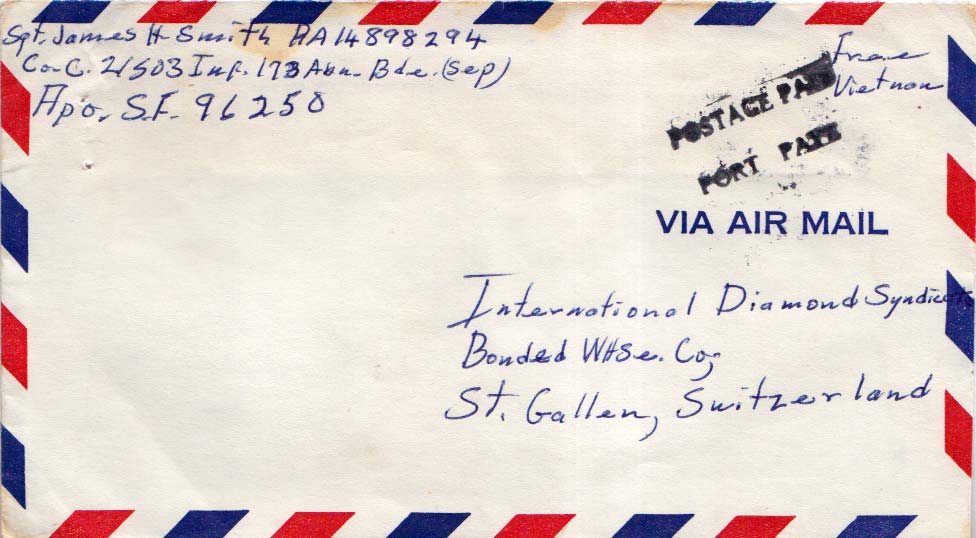 Sgt. James H Smith RA14898294
Co-C. 2/503 Inf. 173 Abn. Bde. (Sep)
Apo. S.F. 96250
Free
Vietnam
POSTAGE PAID
PORT PAYE
VIA AIR MAIL
International Diamond Syndicate
Bonded WHSe. Co;
St. Gallen, Switzerland